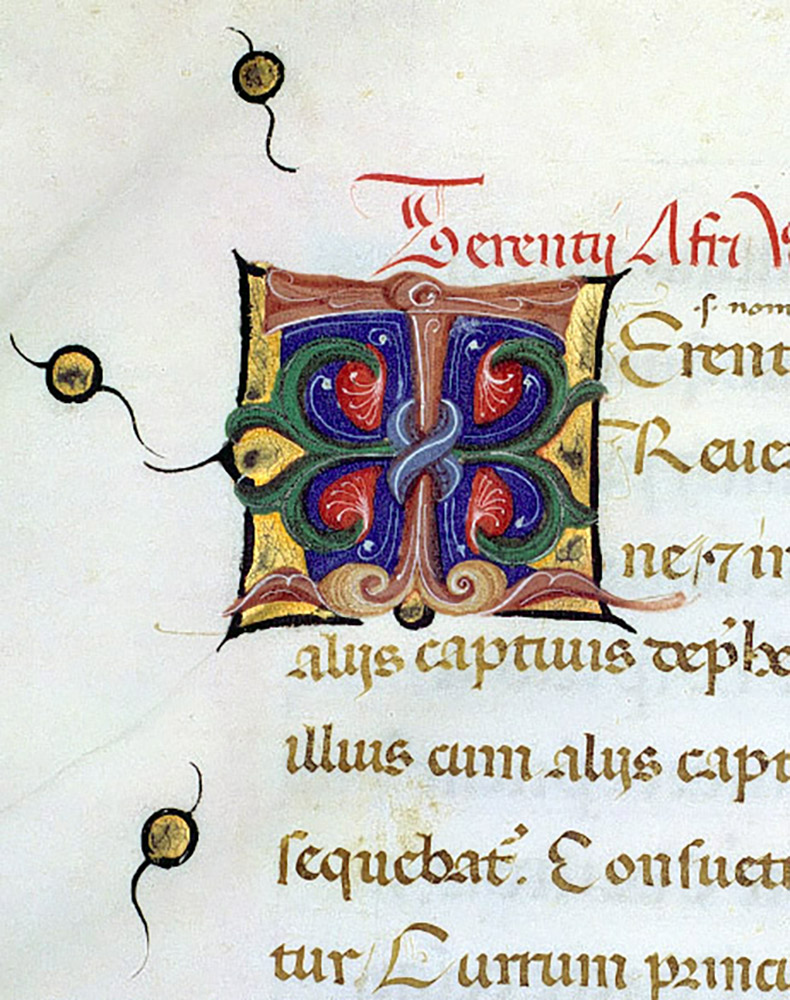 Terentij Afri
.s. nom
T Erent
Reue
ne 7 in
alijs captiuis dep̃he
illius cum alijs capt
sequebat̃. Consuet
tur Currum princ